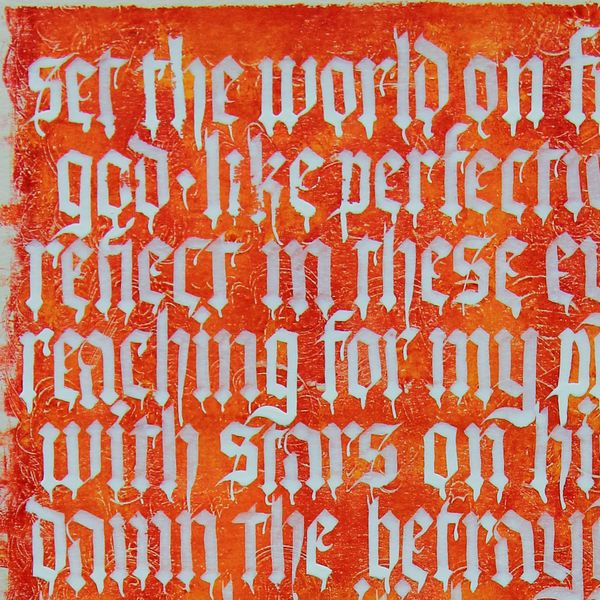 set the world on fi
god-like perfectio
reflect in these ey
reaching for my p
with stars on hi
damn the betray